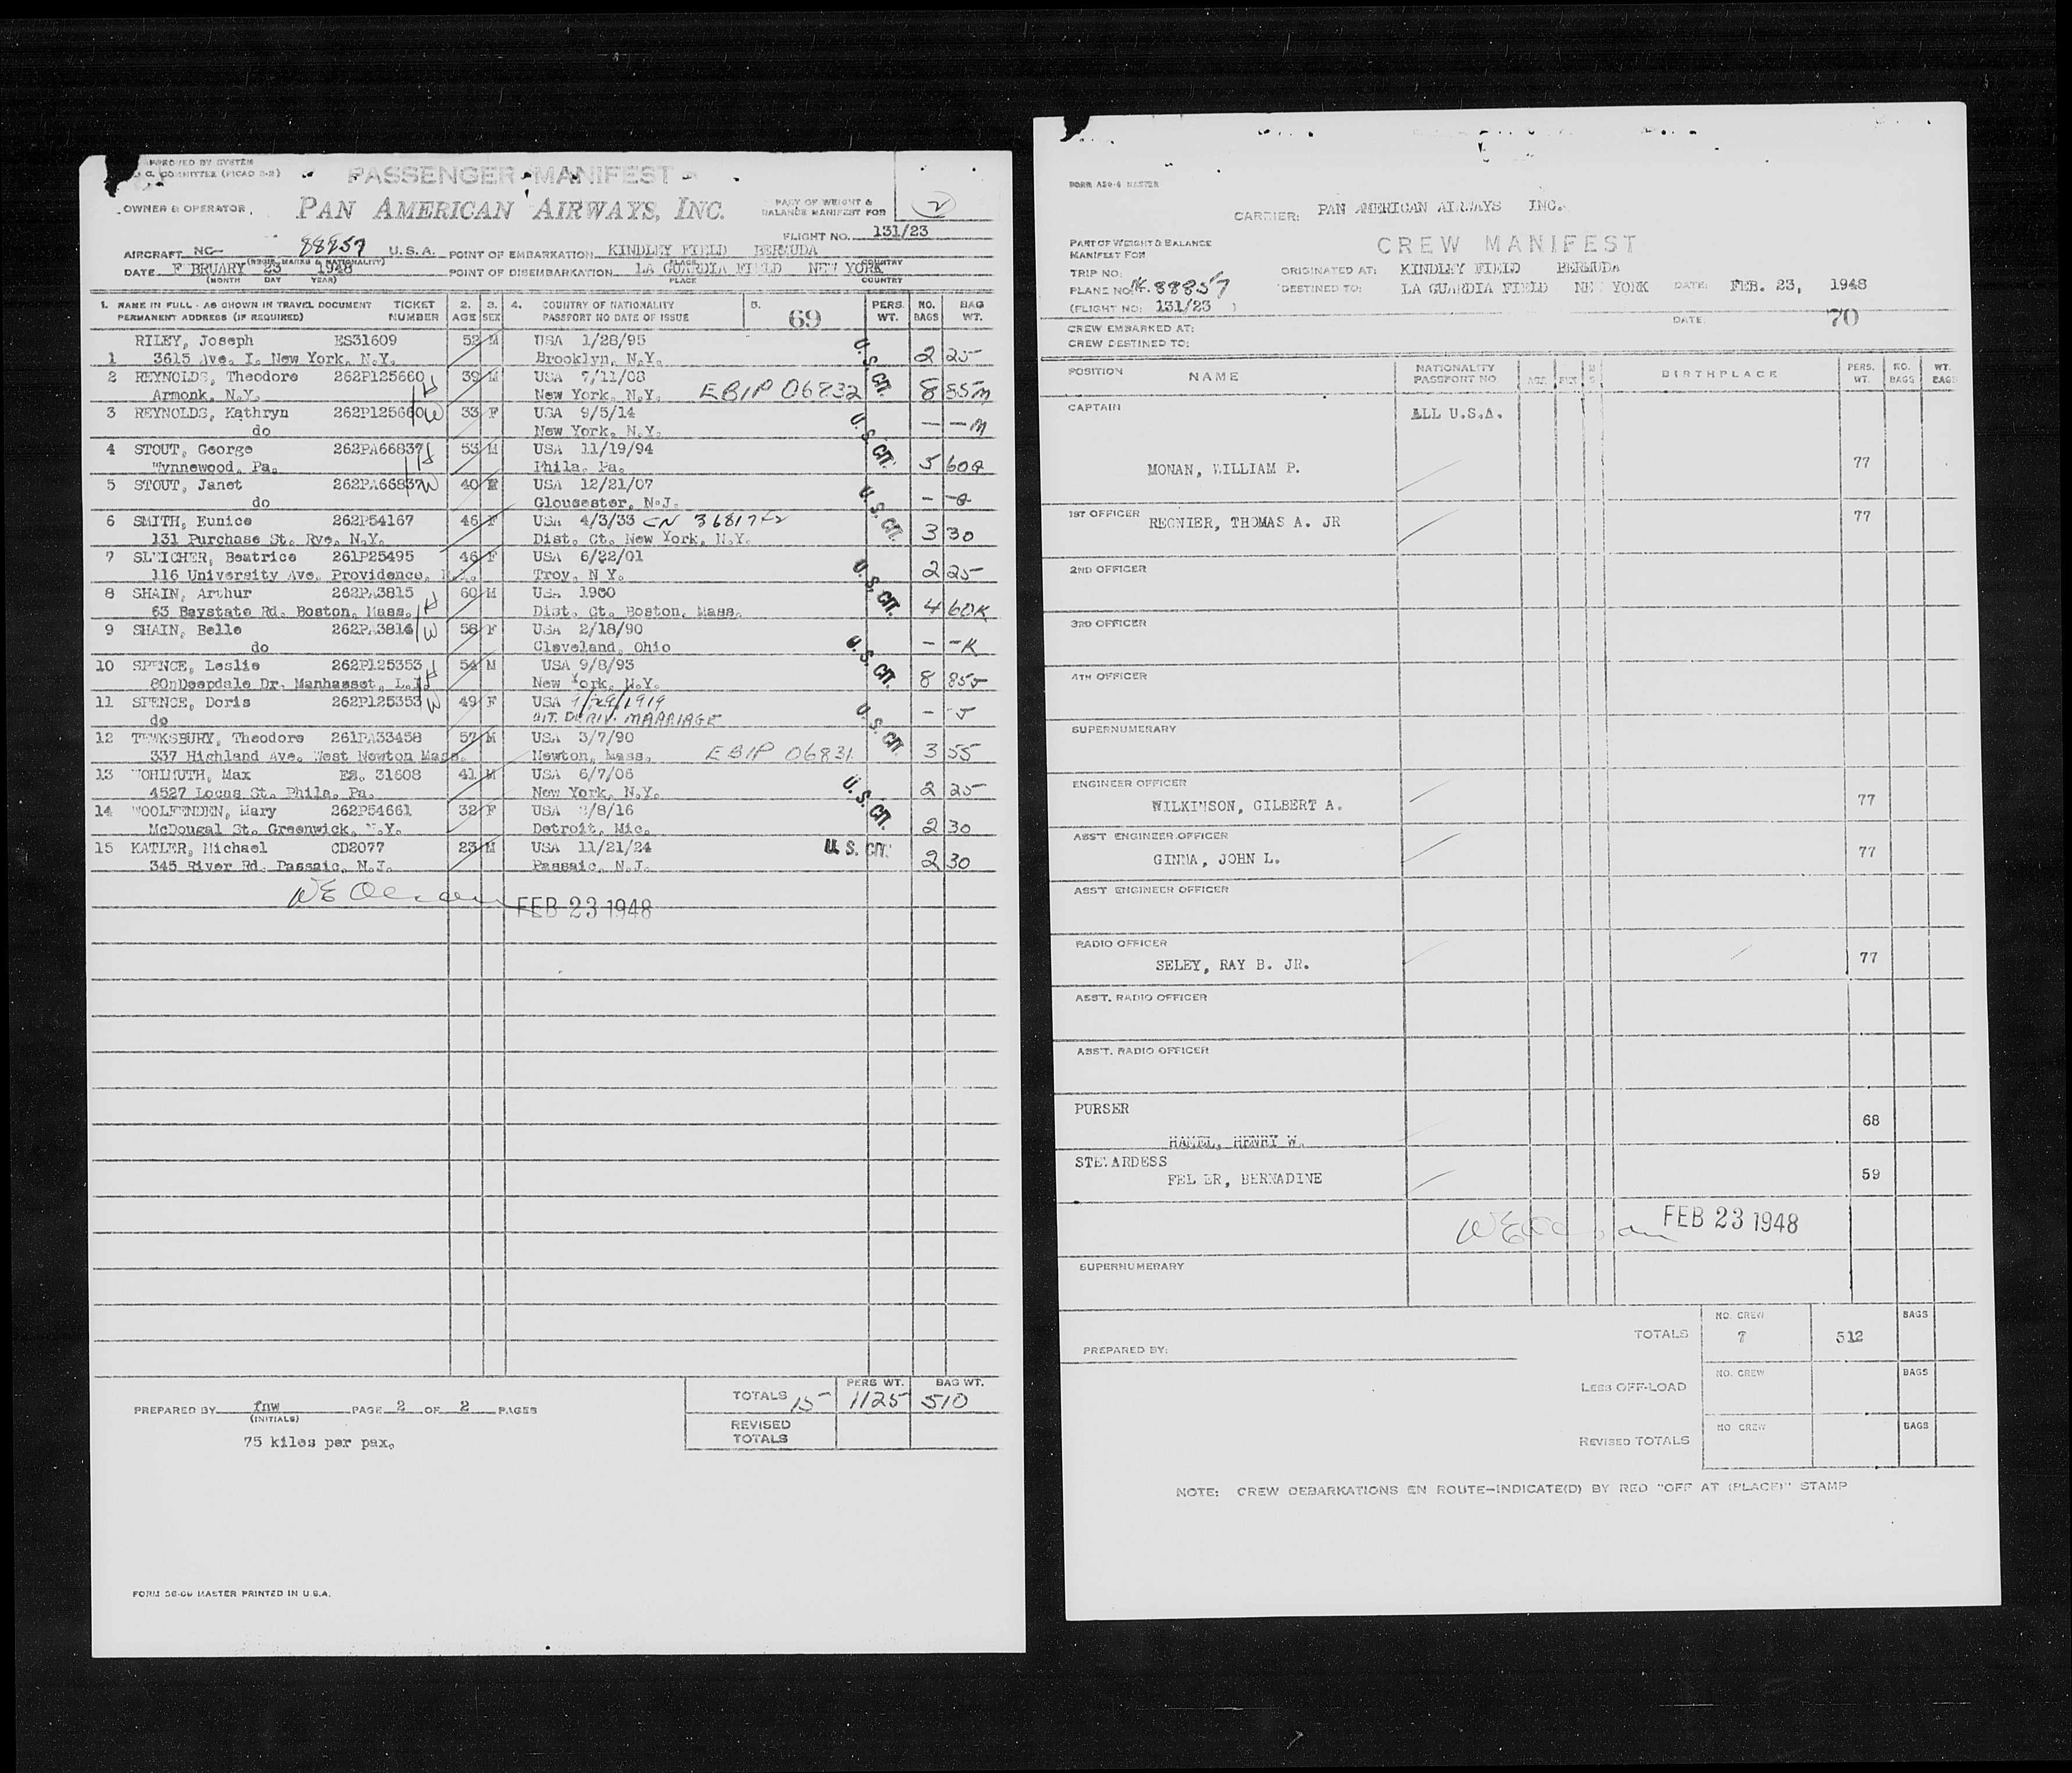 PASSENGER MANIFEST
OWNER & OPERATOR PAN AMERICAN AIRWAYS, INC. PART OF WEIGHT & BALANCE MANIFEST FOR 2
FLIGHT NO. 131/23
AIRCRAFT NC- 88857 U.S.A. POINT OF EMBARKATION KINDLEY FIELD BERMUDA
DATE F BRUARY 23 1948 POINT OF DISEMBARKATION LA GUARDIA FI LD NEW YORK
(MONTH DAY YEAR) PLACE COUNTRY
1. NAME IN FULL - AS SHOWN IN TRAVEL DOCUMENT TICKET 2. 3. 4. COUNTRY OF NATIONALITY 5. PERS. NO. BAG
PERMANENT ADDRESS (IF REQUIRED) NUMBER AGE SEX PASSPORT NO DATE OF ISSUE 69 WT. BAGS WT.
RILEY, Joseph ES31609 52 M USA 1/28/95 U.S. CIT.
1 3615 Ave. I. New York, N.Y. Brooklyn, N.Y. 2 25
2 REYNOLDS, Theodore 262P125660 H 39 M USA 7/11/08
Armonk, N.Y. New York, N.Y. EBIP 06832 8 55 M
3 REYNOLDS, Kathryn 262P125660 W 33 F USA 9/5/14 U.S. CIT.
do New York, N.Y. - - M
4 STOUT, George 262PA66837 H 53 M USA 11/19/94
Wynnewood, Pa. Phila. Pa. 5 60
5 STOUT, Janet 262PA66837 W 40 F USA 12/21/07 U.S. CIT.
do Gloucester, N.J. - -
6 SMITH, Eunice 262P54167 46 F USA 4/3/33
131 Purchase St. Rye, N.Y. Dist. Ct. New York, N.Y. 3 30
7 SLEICHER, Beatrice 261P25495 46 F USA 6/22/01 U.S. CIT.
116 University Ave. Providence, Troy, N Y. 2 25
8 SHAIN, Arthur 262PA3815 H 60 M USA 1900
63 Baystate Rd. Boston, Mass. Dist. Ct. Boston, Mass. 4 60 K
9 SHAIN, Belle 262PA3814 W 58 F USA 2/18/90 U.S. CIT.
do Cleveland, Ohio - - K
10 SPENCE, Leslie 262P125353 H 54 M USA 9/8/93
80 Deepdale Dr. Manhasset, L.I. New York, N.Y. 8 85 J
11 SPENCE, Doris 262P125353 W 49 F USA 9/29/1919 U.S. CIT.
do CIT. DERIV. MARRIAGE - J
12 TEWKSBURY, Theodore 261PA33458 57 M USA 3/7/90
337 Highland Ave. West Newton Mass. Newton, Mass. EBIP 06831 3 55
13 WOHLMUTH, Max ES. 31608 41 M USA 6/7/06 U.S. CIT.
4527 Locus St. Phila. Pa. New York, N.Y. 2 25
14 WOOLFENDEN, Mary 262P54661 32 F USA 2/8/16
McDougal St. Greenwick, N.Y. Detroit, Mic. 2 30
15 KATLER, Michael CD2077 23 M USA 11/21/24 U.S. CIT.
345 River Rd. Passaic, N.J. Passaic, N.J. 2 30
FEB 23 1948
PERS WT. BAG WT.
TOTALS 15 1125 510
PREPARED BY fnw PAGE 2 OF 2 PAGES
(INITIALS)
REVISED TOTALS
75 kilos per pax.
MASTER PRINTED IN U.S.A.
CARRIER: PAN AMERICAN AIRWAYS INC.
PART OF WEIGHT & BALANCE
MANIFEST FOR
CREW MANIFEST
TRIP NO: ORIGINATED AT: KINDLEY FIELD BERMUDA
PLANE NO: NC 88857 DESTINED TO: LA GUARDIA FIELD NE YORK DATE: FEB. 23, 1948
(FLIGHT NO: 131/23 )
CREW EMBARKED AT: DATE: 70
CREW DESTINED TO:
POSITION NAME NATIONALITY PASSPORT NO. AGE SEX BIRTHPLACE PERS. WT. NO. BAGS WT. BAGS
CAPTAIN ALL U.S.A.
MONAN, WILLIAM P. 77
1ST OFFICER REGNIER, THOMAS A. JR 77
2ND OFFICER
3RD OFFICER
4TH OFFICER
SUPERNUMERARY
ENGINEER OFFICER
WILKINSON, GILBERT A. 77
ASST ENGINEER OFFICER
GINNA, JOHN L. 77
ASST ENGINEER OFFICER
RADIO OFFICER
SELEY, RAY B. JR. 77
ASST. RADIO OFFICER
ASST. RADIO OFFICER
PURSER
HAMEL, HENRY W. 68
STEWARDESS
FEL ER, BERNADINE 59
FEB 23 1948
SUPERNUMERARY
NO. CREW BAGS
TOTALS 7 512
PREPARED BY:
NO. CREW BAGS
LESS OFF-LOAD
NO CREW BAGS
REVISED TOTALS
NOTE: CREW DEBARKATIONS EN ROUTE-INDICATE(D) BY RED "OFF AT (PLACE)" STAMP